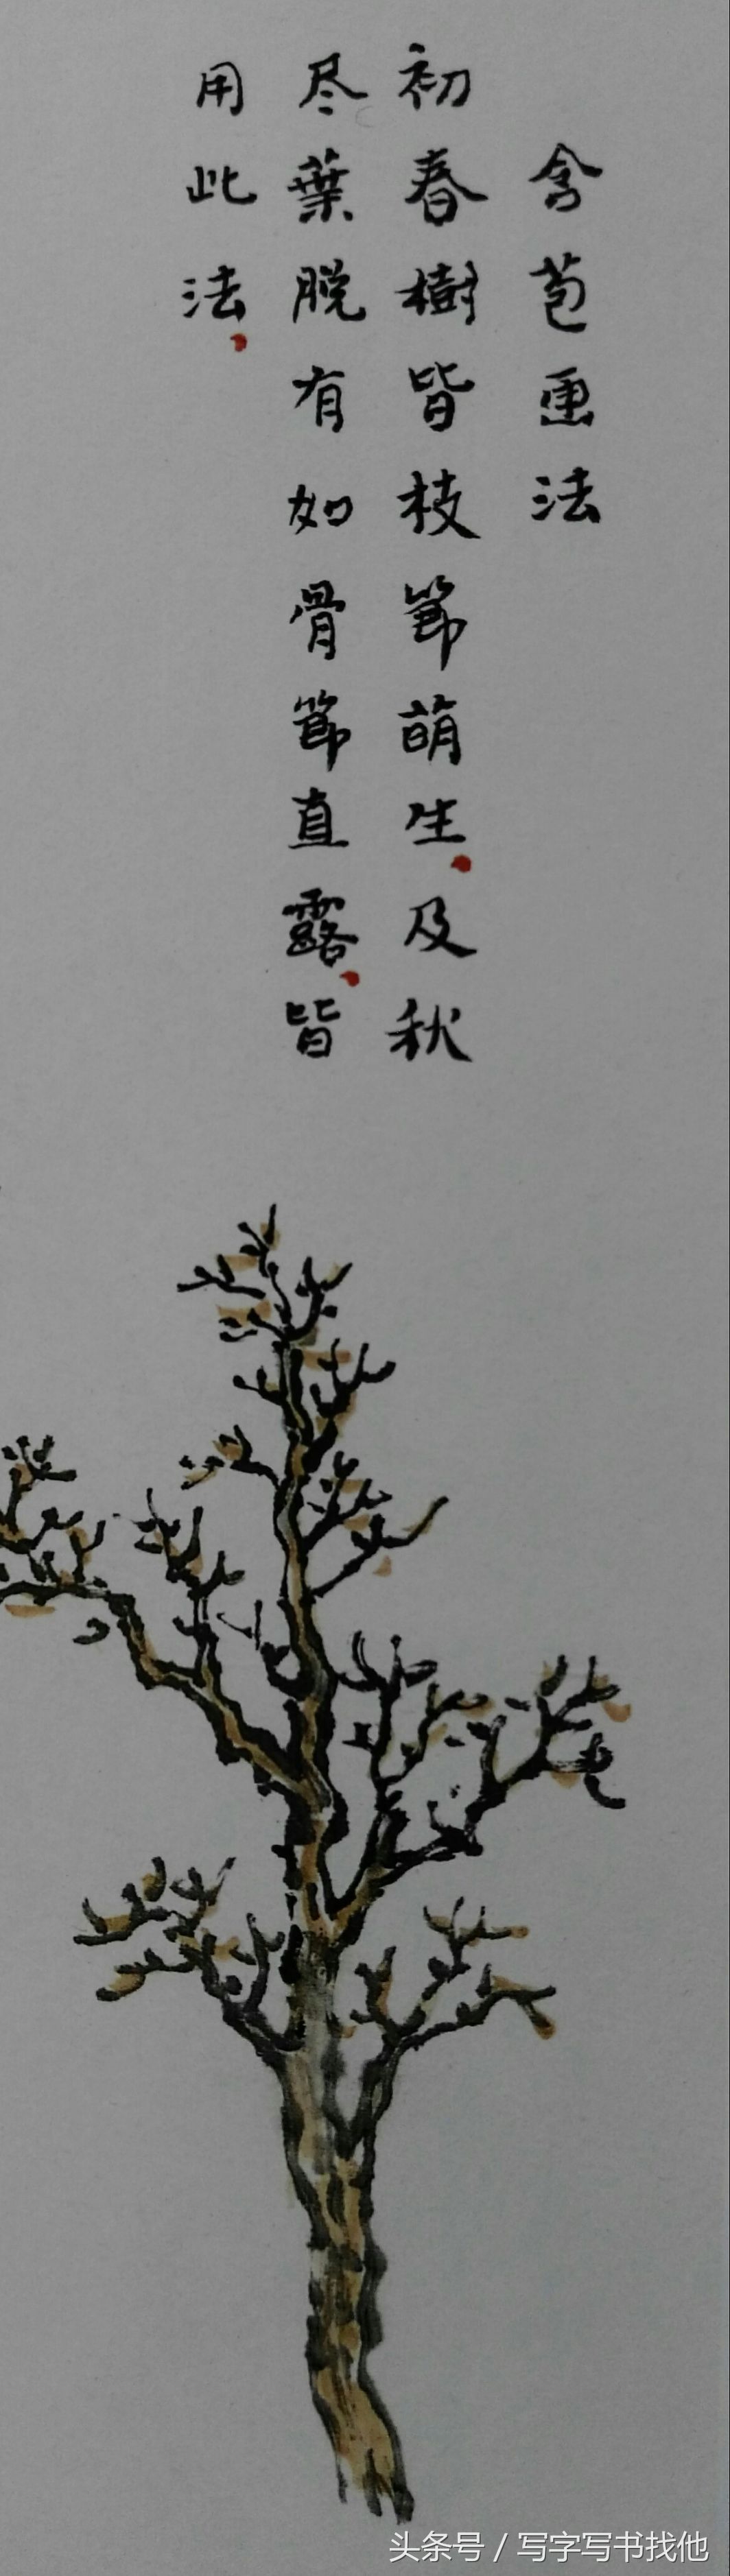 含苞画法
初春樹皆枝節萌生。及秋
尽葉脱有如骨節直露。皆
用此法。
头条号 / 写字写书找他